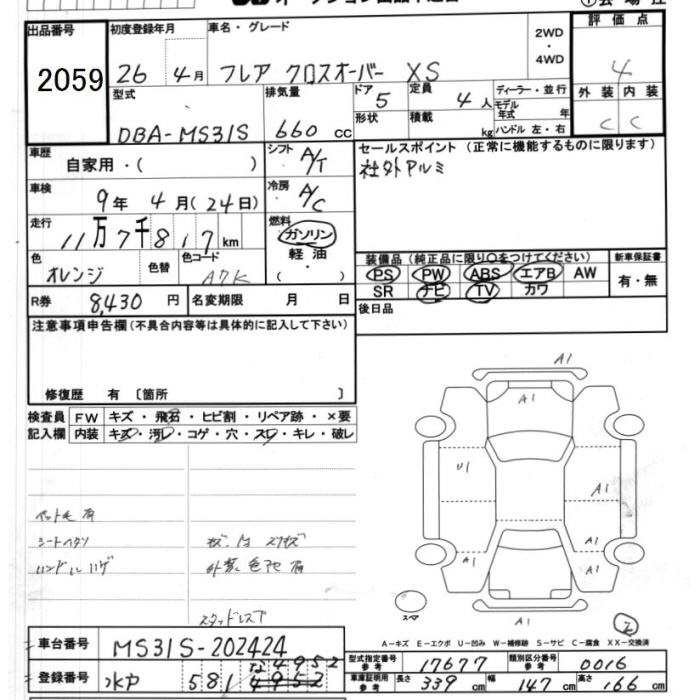 出品番号 初度登録年月 車名・グレード 2WD・4WD 評価点
2059 26年 4月 フレア クロスオーバー XS 4
型式 排気量 ドア 5 定員 4人 ディーラー・並行 外装 内装
DBA-MS31S 660cc 形状 積載 kg モデル年式 年 ハンドル 左・右 C C
車歴 自家用・( ) シフト A/T セールスポイント(正常に機能するものに限ります)
社外アルミ
車検 9年 4月(24日) 冷房 A/C
走行 11万7千817km 燃料 ガソリン 軽油・( )
色 オレンジ 色替 色コード A7K
装備品(純正品に限り○をつけてください) 新車保証書
PS PW ABS エアB AW 有・無
SR ナビ TV カワ
R券 8,430円 名変期限 月 日 後日品
注意事項申告欄(不具合内容等は具体的に記入して下さい)
修復歴 有 〔箇所 〕
検査員 FW キズ・飛石・ヒビ割・リペア跡・×要
記入欄 内装 キズ・汚レ・コゲ・穴・スレ・キレ・破レ
A1
A1
U1
A1
A1 A1
A1 A1
A1
ペット毛有
シートヘタリ
ハンドルハゲ
外装色アセ有
スタッドレス
スペア
A-キズ E-エクボ U-凹み W-補修跡 S-サビ C-腐食 XX-交換済
車台番号 MS31S-202424
型式指定番号 参考 17677 類別区分番号 参考 0016
登録番号 水戸 581 な4952 4952
車庫証明用 参考 長さ 339cm 幅 147cm 高さ 166cm